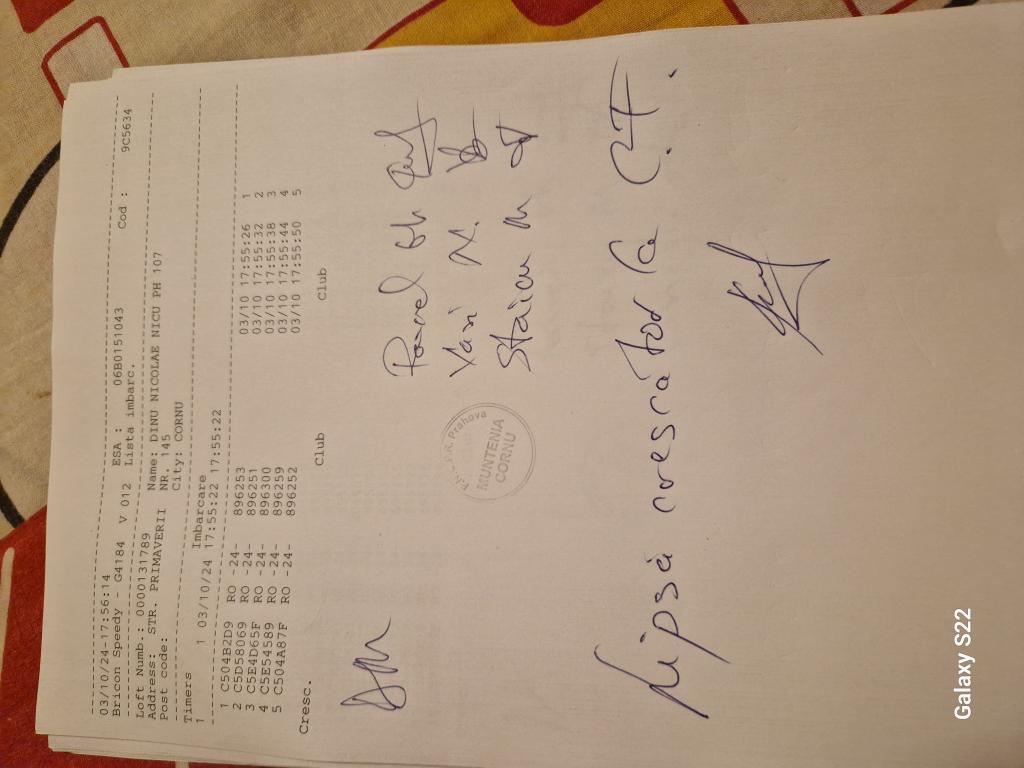 03/10/24-17:56:14
Bricon Speedy - G4184 V 012 ESA : 06B0151043
Lista imbarc. Cod : 9C5634
Loft Numb.: 0000131789 Name: DINU NICOLAE NICU PH 107
Address: STR. PRIMAVERII NR. 145
Post code: City: CORNU
Timers Imbarcare
1 1 03/10/24 17:55:22 17:55:22
1 C504B2D9 RO -24- 896253 03/10 17:55:26 1
2 C5D58069 RO -24- 896251 03/10 17:55:32 2
3 C5E4D65F RO -24- 896300 03/10 17:55:38 3
4 C5E54589 RO -24- 896259 03/10 17:55:44 4
5 C504A87F RO -24- 896252 03/10 17:55:50 5
Cresc. Club Club
Prahova
MUNTENIA
CORNU
Pavel Gh
Staicu M
Lipsă crescător la C.F.
Galaxy S22